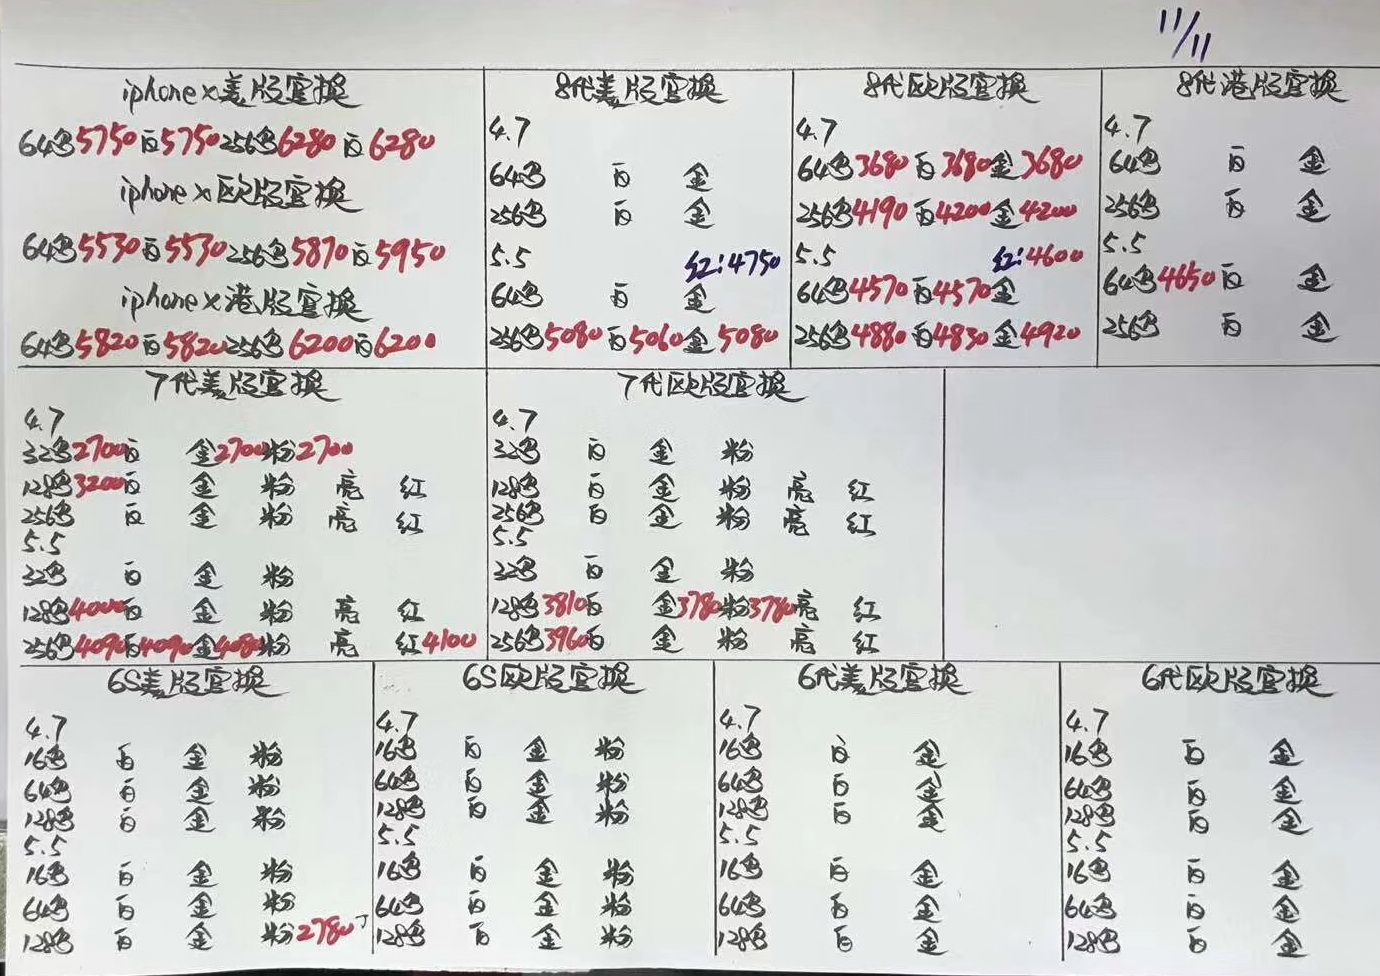 11/11
iphone x美版官换
64色5750白5750 256色6280白6280
iphone x欧版官换
64色5530白5530 256色5870白5950
iphone x港版官换
64色5820白5820 256色6200白6200
8代美版官换
4.7
64色 白 金
256色 白 金
5.5 红:4750
64色 白 金
256色5080白5060金5080
8代欧版官换
4.7
64色3680白3680金3680
256色4190白4200金4200
5.5 红:4600
64色4570白4570金
256色4880白4830金4920
8代港版官换
4.7
64色 白 金
256色 白 金
5.5
64色4650白 金
256色 白 金
7代美版官换
4.7
32色2700白 金2700粉2700
128色3200白 金 粉 亮 红
256色 白 金 粉 亮 红
5.5
32色 白 金 粉
128色4000白 金 粉 亮 红
256色4090白4090金4080粉 亮 红4100
7代欧版官换
4.7
32色 白 金 粉
128色 白 金 粉 亮 红
256色 白 金 粉 亮 红
5.5
32色 白 金 粉
128色3810白 金3780粉3780亮 红
256色3960白 金 粉 亮 红
6S美版官换
4.7
16色 白 金 粉
64色 白 金 粉
128色 白 金 粉
5.5
16色 白 金 粉
64色 白 金 粉
128色 白 金 粉2780
6S欧版官换
4.7
16色 白 金 粉
64色 白 金 粉
128色 白 金 粉
5.5
16色 白 金 粉
64色 白 金 粉
128色 白 金 粉
6代美版官换
4.7
16色 白 金
64色 白 金
128色 白 金
5.5
16色 白 金
64色 白 金
128色 白 金
6代欧版官换
4.7
16色 白 金
64色 白 金
128色 白 金
5.5
16色 白 金
64色 白 金
128色 白 金